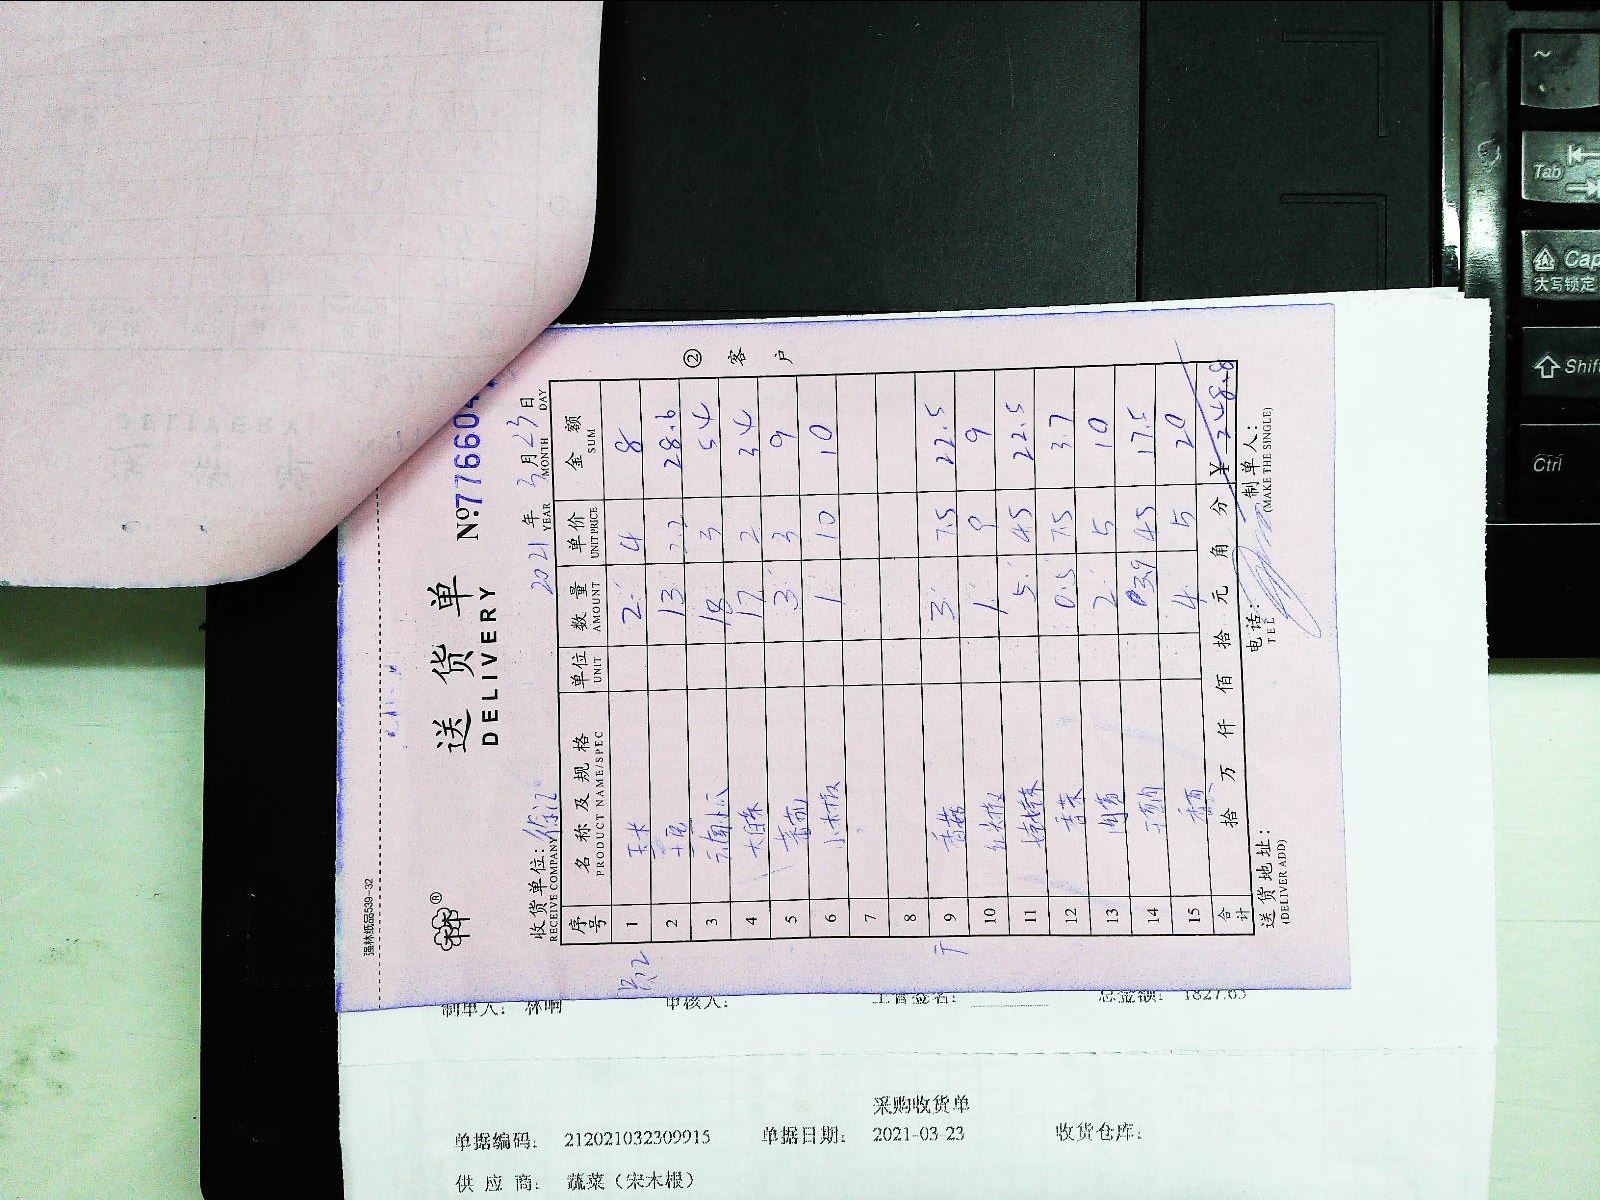 强林纸品539-32
送货单
DELIVERY
№776604
收货单位:
RECEIVE COMPANY
2021年3月23日
YEAR MONTH DAY
序号 名称及规格 单位 数量 单价 金额
PRODUCT NAME/SPEC UNIT AMOUNT UNIT PRICE SUM
1 玉米 2 4 8
2 13 2.2 28.6
3 18 3 54
4 17 2 34
5 3 3 9
6 小米椒 1 10 10
7
8
9 香菇 3 7.5 22.5
10 1 9 9
11 5 4.5 22.5
12 香菜 0.5 7.5 3.7
13 2 5 10
14 3.9 4.5 17.5
15 4 5 20
合计 拾 万 仟 佰 拾 元 角 分 ¥ 248.8
送货地址:
(DELIVER ADD)
电话:
TEL
制单人:
(MAKE THE SINGLE)
② 客户
制单人: 审核人: 主管签名: 总金额: 1827.65
采购收货单
单据编码: 212021032309915 单据日期: 2021-03-23 收货仓库:
供应商: 蔬菜(宋木根)
~
Tab
Cap
大写锁定
Shif
Ctrl